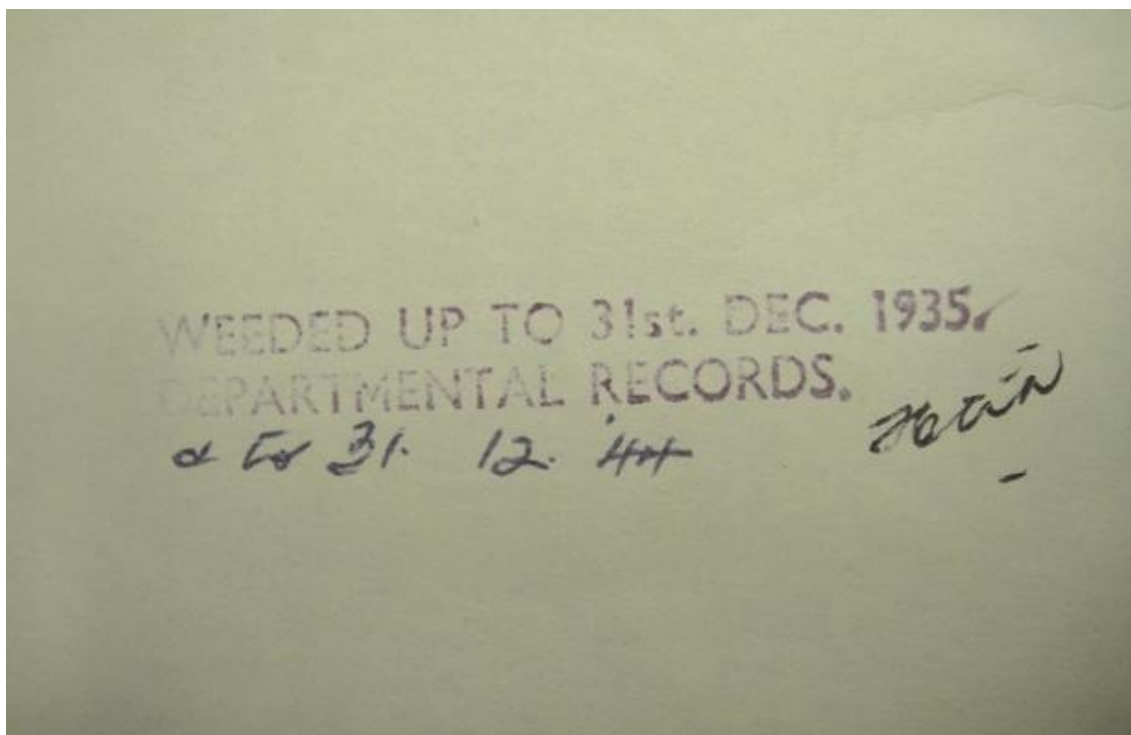 WEEDED UP TO 31st. DEC. 1935.
DEPARTMENTAL RECORDS.
& to 31. 12. 44